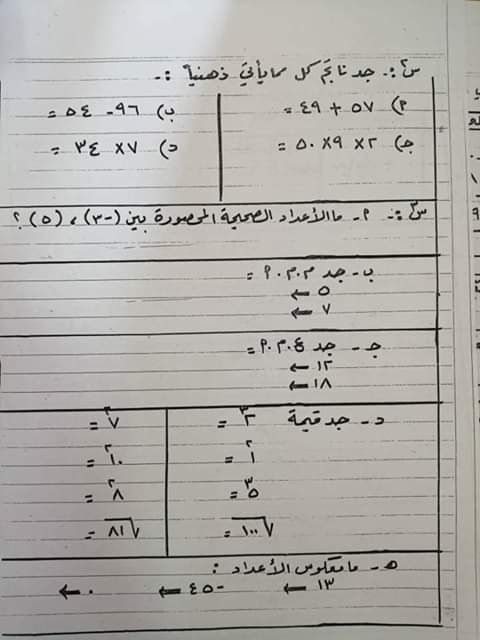 س١:. جد ناتج كل مما يأتي ذهنيا :-
٩) ٥٧ + ٤٩ =
ب) ٩٦ - ٥٤ =
ج) ٢ × ٩ × ٥٠ =
د) ٧ × ٣٤ =
:- ٩- ما الأعداد الصحيحة المحصورة بين (-٣) ، (٥) ؟
ب- جد م.م.٩ =
٥ ←
٧ ←
ج- جد ع.م.٩ =
١٢ ←
١٨ ←
د- جد قيمة ٢³ =
٧² =
١² =
١٠² =
٥³ =
٨² =
√١٠٠ =
√٨١ =
ه- ما معكوس الأعداد :
١٣ ← -٤٥ ← ٠ ←